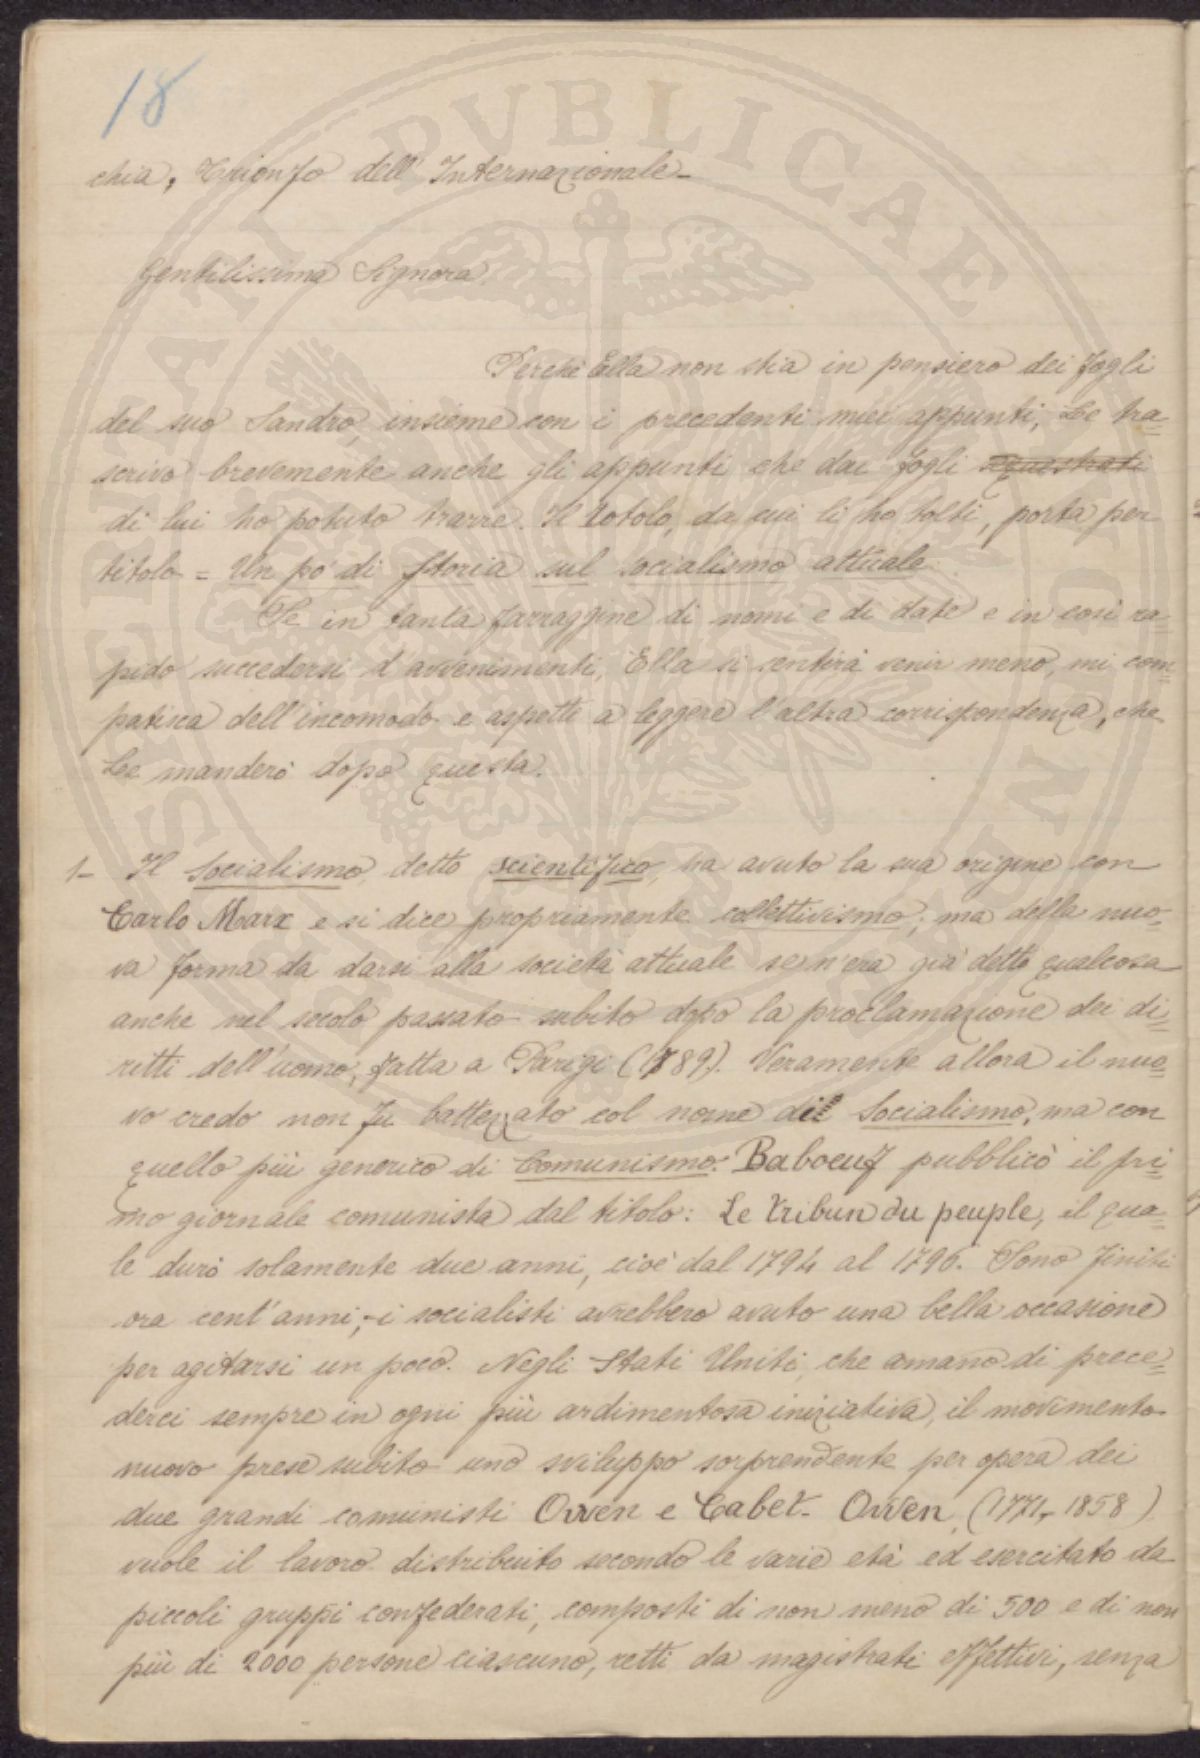 18
chia, Trionfo dell'Internazionale -
Gentilissima Signora
Perchè Ella non stia in pensiero dei fogli
del suo Sandro, insieme con i precedenti miei appunti, Le tra=
scrivo brevemente anche gli appunti che dai fogli sequestrati
di lui ho potuto trarre. Il rotolo, da cui li ho tolti, porta per
titolo = Un po' di storia sul socialismo attuale.
Se in tanta farraggine di nomi e di date e in così ra=
pido succedersi d'avvenimenti, Ella si sentirà venir meno, mi com=
patisca dell'incomodo e aspetti a leggere l'altra corrispondenza, che
Le manderò dopo questa.
1- Il Socialismo, detto scientifico, ha avuto la sua origine con
Carlo Marx e si dice propriamente collettivismo; ma della nuo=
va forma da darsi alla società attuale se n'era già detto qualcosa
anche nel secolo passato subito dopo la proclamazione dei di=
ritti dell'uomo, fatta a Parigi (1789). Veramente allora il nuo=
vo credo non fu battezzato col nome di Socialismo, ma con
quello più generico di Comunismo. Baboeuf pubblicò il pri=
mo giornale comunista dal titolo: Le tribun du peuple, il qua=
le durò solamente due anni, cioè dal 1794 al 1796. Sono finiti
ora cent'anni; - i socialisti avrebbero avuto una bella occasione
per agitarsi un poco. Negli Stati Uniti, che amano di prece=
derci sempre in ogni più ardimentosa iniziativa, il movimento
nuovo prese subito uno sviluppo sorprendente per opera dei
due grandi comunisti Owen e Cabet. Owen, (1771-1858)
vuole il lavoro distribuito secondo le varie età ed esercitato da
piccoli gruppi confederati, composti di non meno di 500 e di non
più di 2000 persone ciascuno, retti da magistrati effettivi, senza
BIBLIOTHECA SENATVS REI PVBLICAE